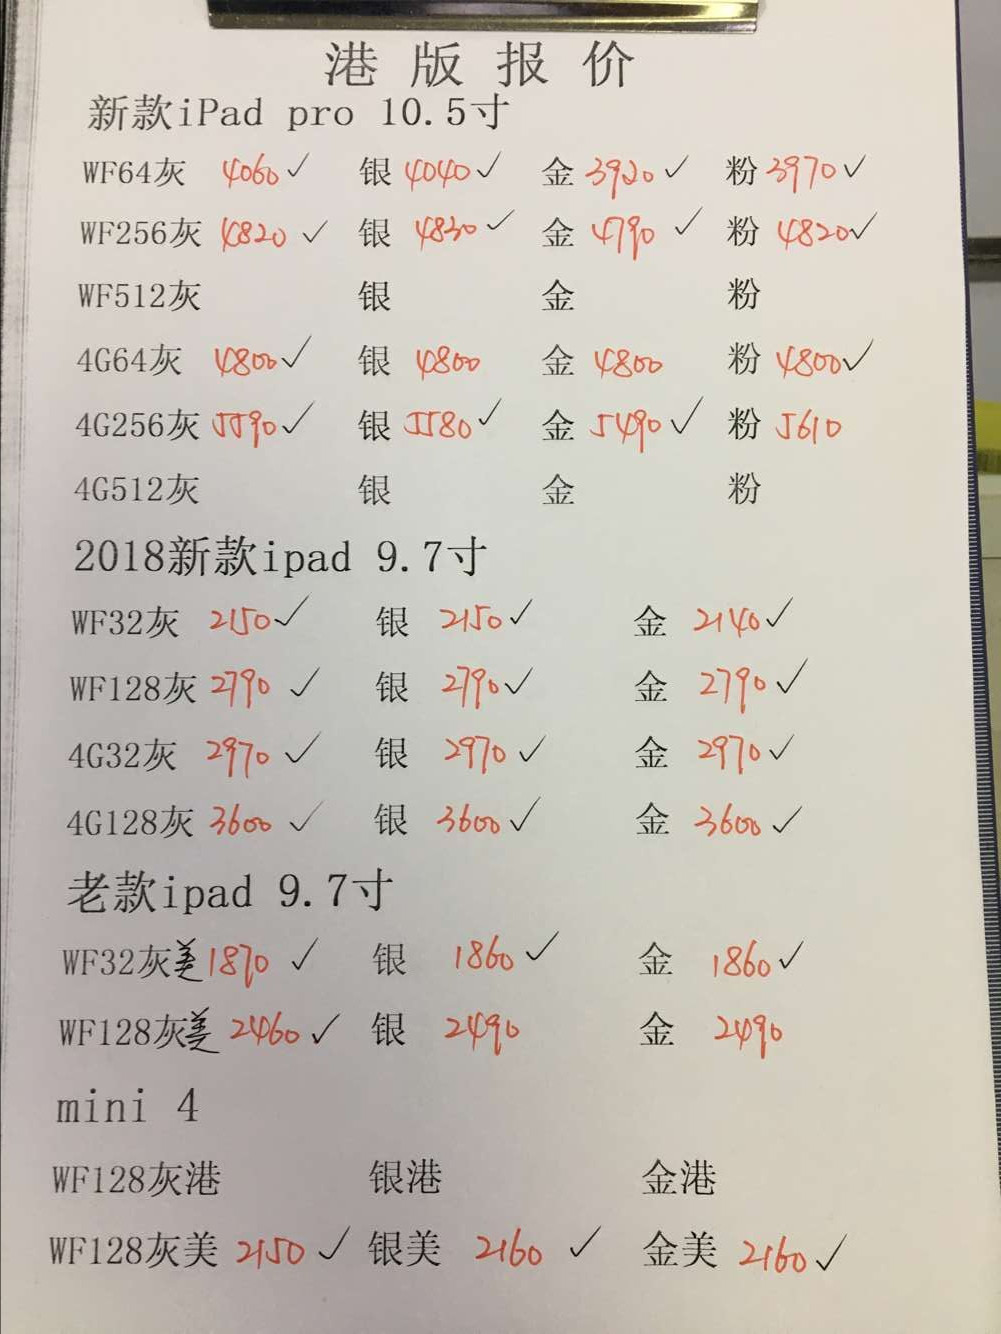 港版报价
新款iPad pro 10.5寸
WF64灰 4060✓ 银 4040✓ 金 3920✓ 粉 3970✓
WF256灰 4820✓ 银 4830✓ 金 4790✓ 粉 4820✓
WF512灰 银 金 粉
4G64灰 4800✓ 银 4800 金 4800 粉 4800✓
4G256灰 5590✓ 银 5580✓ 金 5490✓ 粉 5610
4G512灰 银 金 粉
2018新款ipad 9.7寸
WF32灰 2150✓ 银 2150✓ 金 2140✓
WF128灰 2790✓ 银 2790✓ 金 2790✓
4G32灰 2970✓ 银 2970✓ 金 2970✓
4G128灰 3600✓ 银 3600✓ 金 3600✓
老款ipad 9.7寸
WF32灰美 1870✓ 银 1860✓ 金 1860✓
WF128灰美 2460✓ 银 2490 金 2490
mini 4
WF128灰港 银港 金港
WF128灰美 2150✓ 银美 2160✓ 金美 2160✓